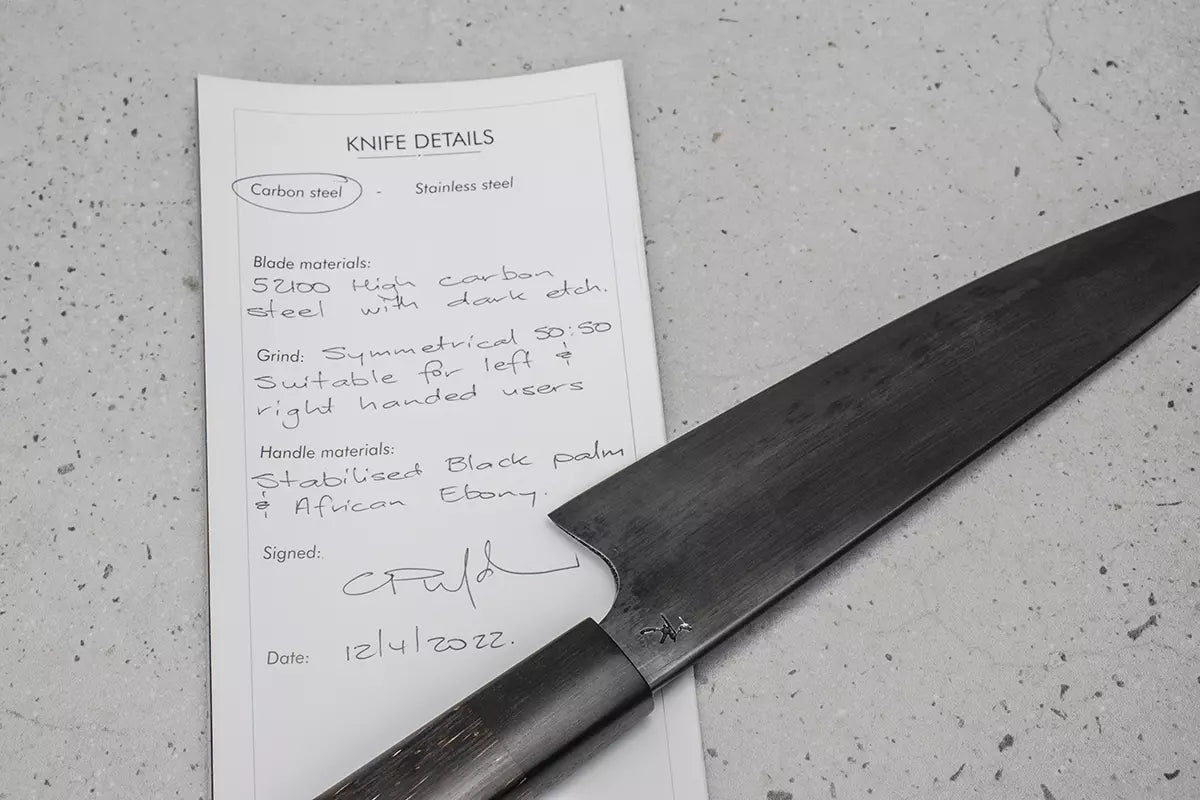 KNIFE DETAILS
Carbon steel - Stainless steel
Blade materials:
52100 High carbon
steel with dark etch.
Grind: Symmetrical 50:50
Suitable for left &
right handed users
Handle materials:
Stabilised Black palm
& African Ebony.
Signed:
Date: 12/4/2022.